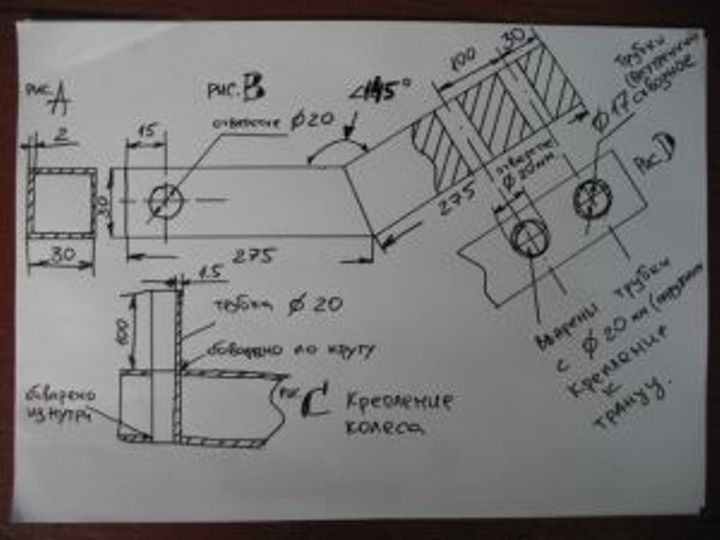 рис. А
2
30
30
рис. В
<145°
15
отверстие ⌀20
275
275
100
30
трубки
(внутренний
⌀17 сквозное
отверстие
⌀20мм
Рис D
Вварены трубки
с ⌀20мм
крепление
к
транцу.
1.5
100
трубка ⌀20
обварено по кругу
обварено
изнутри
рис С Крепление
колеса